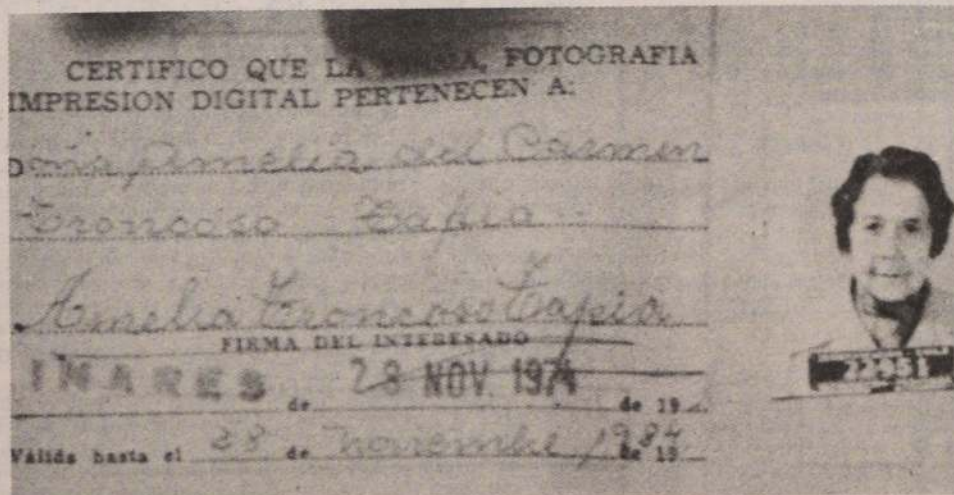 CERTIFICO QUE LA FIRMA, FOTOGRAFIA
IMPRESION DIGITAL PERTENECEN A:
Doña Amelia del Carmen
Troncoso Tapia
Amelia Troncoso Tapia
FIRMA DEL INTERESADO
INARES de 28 NOV. 1974 de 19
Válida hasta el 28 de noviembre 1984 de 19